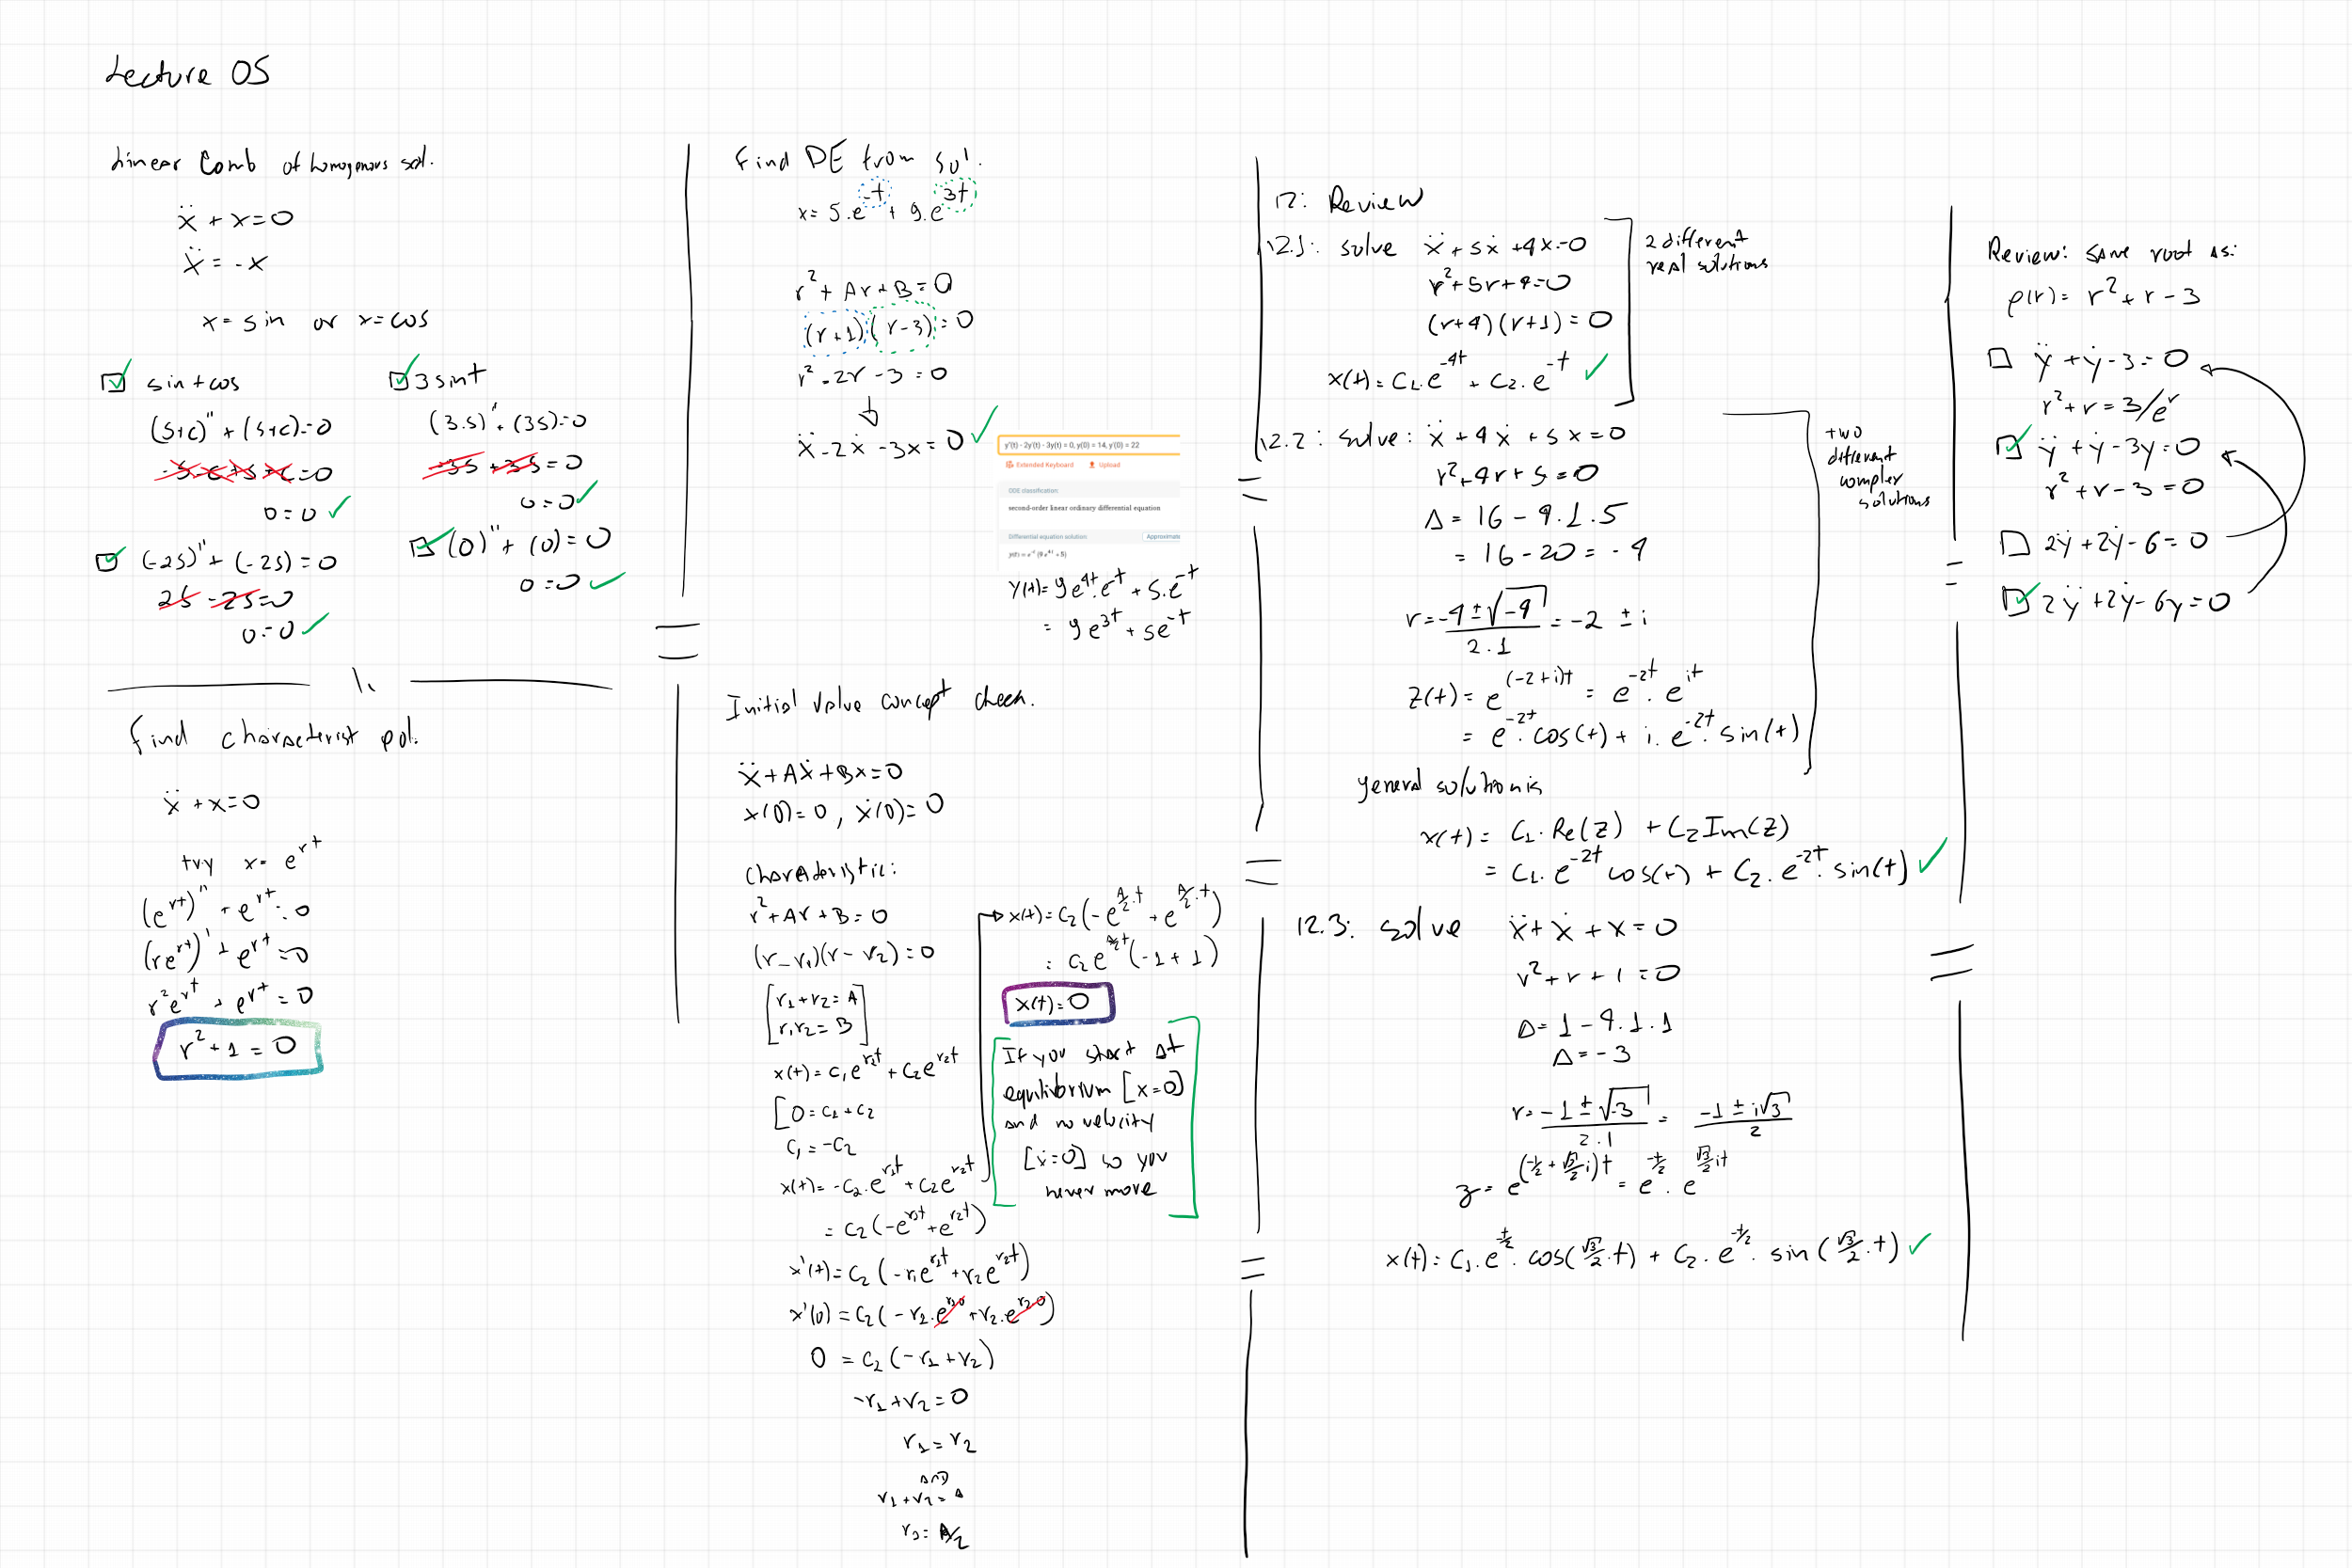 Lecture 05
Linear Comb of homogenous sol.
ẍ + x = 0
ẍ = -x
x = sin or x = cos
☑ sin + cos
(s+c)'' + (s+c) = 0
-s-c+s+c = 0
0 = 0 ✓
☑ 3 sint
(3.s)'' + (3s) = 0
-3s + 3s = 0
0 = 0 ✓
☑ (-2s)'' + (-2s) = 0
2s - 2s = 0
0 = 0 ✓
☑ (0)'' + (0) = 0
0 = 0 ✓
Find characterist pol.
ẍ + x = 0
try x = e^rt
(e^rt)'' + e^rt = 0
(re^rt)' + e^rt = 0
r²e^rt + e^rt = 0
r² + 1 = 0
Find DE from sol.
x = 5.e^-t + 9.e^3t
r² + Ar + B = 0
(r+1)(r-3) = 0
r² - 2r - 3 = 0
↓
ẍ - 2ẋ - 3x = 0 ✓
y''(t) - 2y'(t) - 3y(t) = 0, y(0) = 14, y'(0) = 22
Extended Keyboard Upload
ODE classification:
second-order linear ordinary differential equation
Differential equation solution: Approximate
y(t) = e^-t (9 e^4t + 5)
y(t) = 9e^4t.e^-t + 5.e^-t
= 9e^3t + 5e^-t
Initial value concept check.
ẍ + Aẋ + Bx = 0
x(0) = 0, ẋ(0) = 0
Characteristic:
r² + Ar + B = 0
(r - r₁)(r - r₂) = 0
[r₁ + r₂ = A
r₁r₂ = B]
x(t) = c₁e^r₁t + c₂e^r₂t
[0 = c₁ + c₂
c₁ = -c₂
x(t) = -c₂.e^r₁t + c₂e^r₂t
= c₂(-e^r₁t + e^r₂t)
x'(t) = c₂(-r₁e^r₁t + r₂e^r₂t)
x'(0) = c₂(-r₂.e^r₁0 + r₂.e^r₂0)
0 = c₂(-r₁ + r₂)
-r₁ + r₂ = 0
r₁ = r₂
and
r₁ + r₂ = A
r₁ = A/2
→ x(t) = c₂(-e^A/2.t + e^A/2.t)
= c₂e^A/2t(-1 + 1)
x(t) = 0
If you start at
equilibrium [x=0]
and no velocity
[ẋ=0] so you
never move
12: Review
12.1: solve ẍ + 5ẋ + 4x = 0
r² + 5r + 4 = 0
(r+4)(r+1) = 0
x(t) = C₁.e^-4t + C₂.e^-t ✓
2 different
real solutions
12.2: solve: ẍ + 4ẋ + 5x = 0
r² + 4r + 5 = 0
Δ = 16 - 4.1.5
= 16 - 20 = -4
r = -4 ± √-4 / 2.1 = -2 ± i
z(t) = e^(-2+i)t = e^-2t . e^it
= e^-2t.cos(t) + i.e^-2t.sin(t)
two
different
complex
solutions
general solution is
x(t) = C₁.Re(z) + C₂Im(z)
= C₁.e^-2t cos(t) + C₂.e^-2t.sin(t) ✓
12.3: solve ẍ + ẋ + x = 0
r² + r + 1 = 0
Δ = 1 - 4.1.1
Δ = -3
r = -1 ± √-3 / 2.1 = -1 ± i√3 / 2
z = e^(-1/2 + √3/2 i)t = e^-t/2 . e^√3/2 it
x(t) = C₁.e^-t/2.cos(√3/2.t) + C₂.e^-t/2.sin(√3/2.t) ✓
Review: same root as:
p(r) = r² + r - 3
☐ ÿ + ẏ - 3 = 0
r² + r = 3/e^r
☑ ÿ + ẏ - 3y = 0
r² + r - 3 = 0
☐ 2ÿ + 2ẏ - 6 = 0
☑ 2ÿ + 2ẏ - 6y = 0